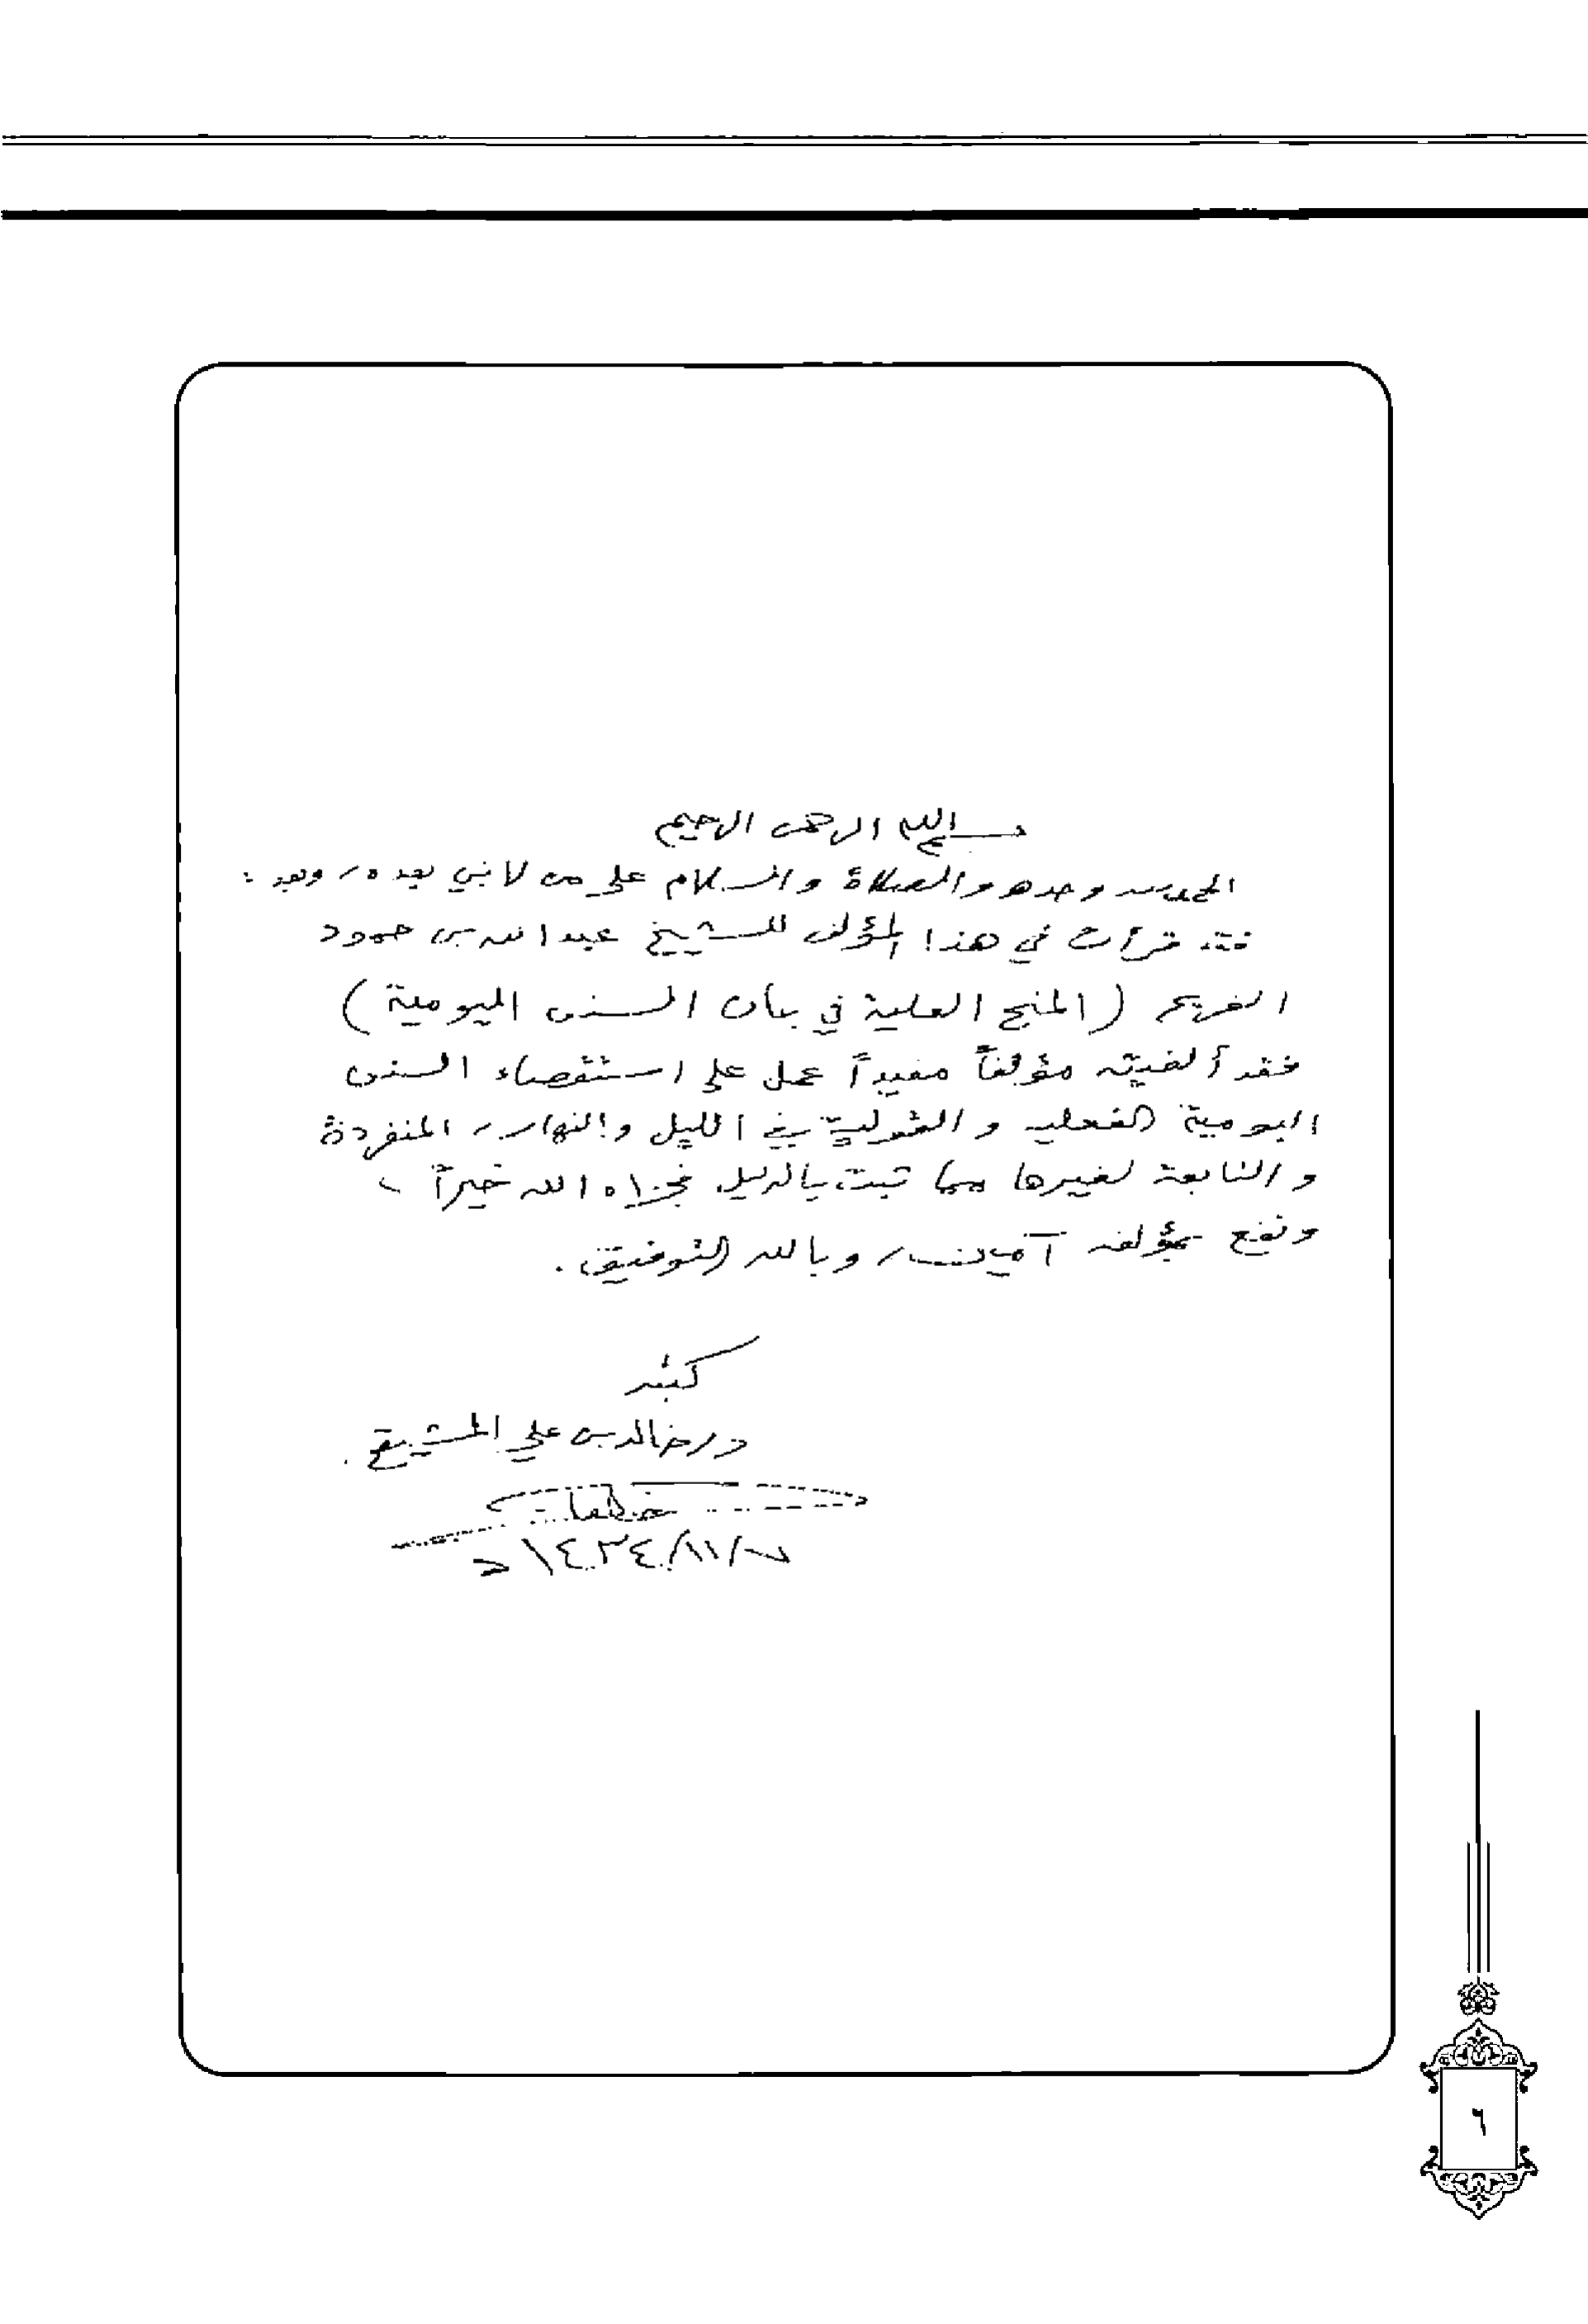 بسم الله الرحمن الرحيم
الحمد لله وحده والصلاة والسلام على من لا نبي بعده، وبعد:
فقد قرأت في هذا المؤلف للشيخ عبد الله بن حمود
الفريح (المنح العلية في بيان السنن اليومية)
فقد ألفيته مؤلفاً مفيداً عمل على استقصاء السنن
اليومية الفعلية والقولية في الليل والنهار، المنفردة
والتابعة لغيرها مما ثبت بالدليل فجزاه الله خيراً،
ونفع بمؤلفه آمين، وبالله التوفيق.
كتبه
د/ خالد بن علي المشيقح.
١٤٣٤/١١/٧ هـ
٦